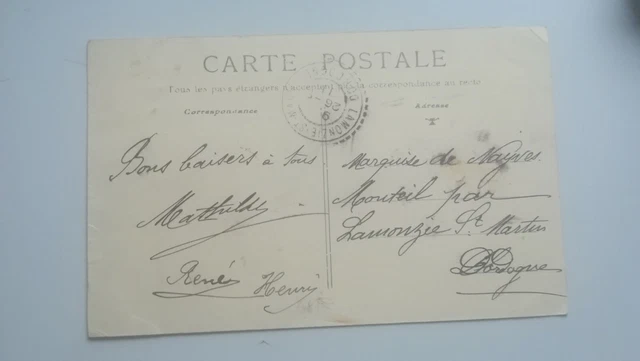 CARTE POSTALE
Tous les pays étrangers n'acceptent pas la correspondance au recto
Correspondance
Adresse
LAMONZIE
Bons baisers à tous
Mathilde
René Henry
Marquise de
Monteil par
Lamonzie St Martin
Dordogne